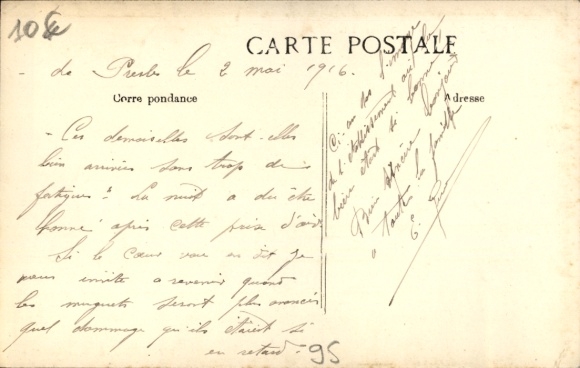 10€
CARTE POSTALE
- de Presles le 2 mai 1916.
Correspondance
Adresse
- Ces demoiselles sont-elles
bien arrivées sans trop de
fatigues? La nuit a du être
bonne après cette prise d'air
Si le cœur vous en dit je
vous invite a revenir quand
les muguets seront plus avancés
quel dommage qu'ils étaient si
en retard -
95
Ci-un des l'image
de l'établissement
bière était si bonne
Bien sincère bonjour
a toute la famille
E.